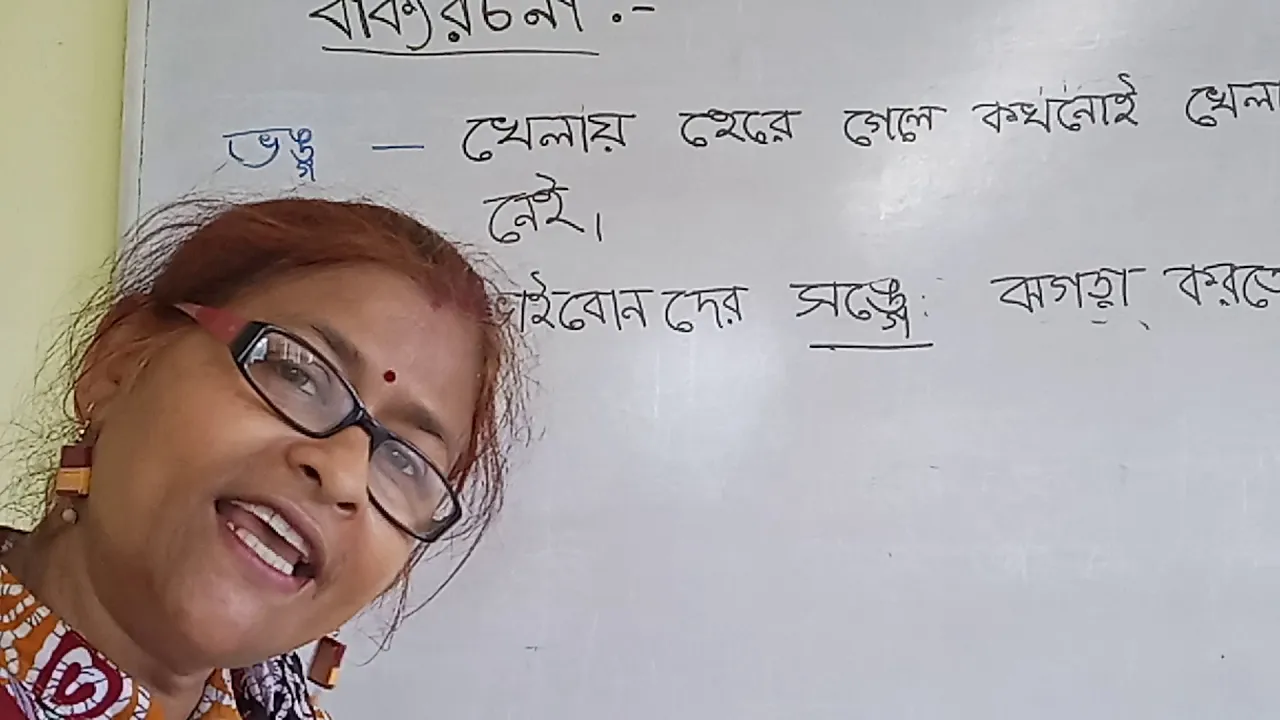 বাক্যরচনা :-
ভঙ্গ — খেলায় হেরে গেলে কখনোই খেলা
নেই।
ভাইবোনদের সঙ্গে ঝগড়া করতে